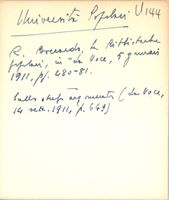 Università Popolari U144
R. Bresseds, Le Biblioteche
popolari, in "La Voce, 5 gennaio
1911, pp. 480-81.
Sullo stesso argomento (La Voce,
14 sett. 1911, p. 649)